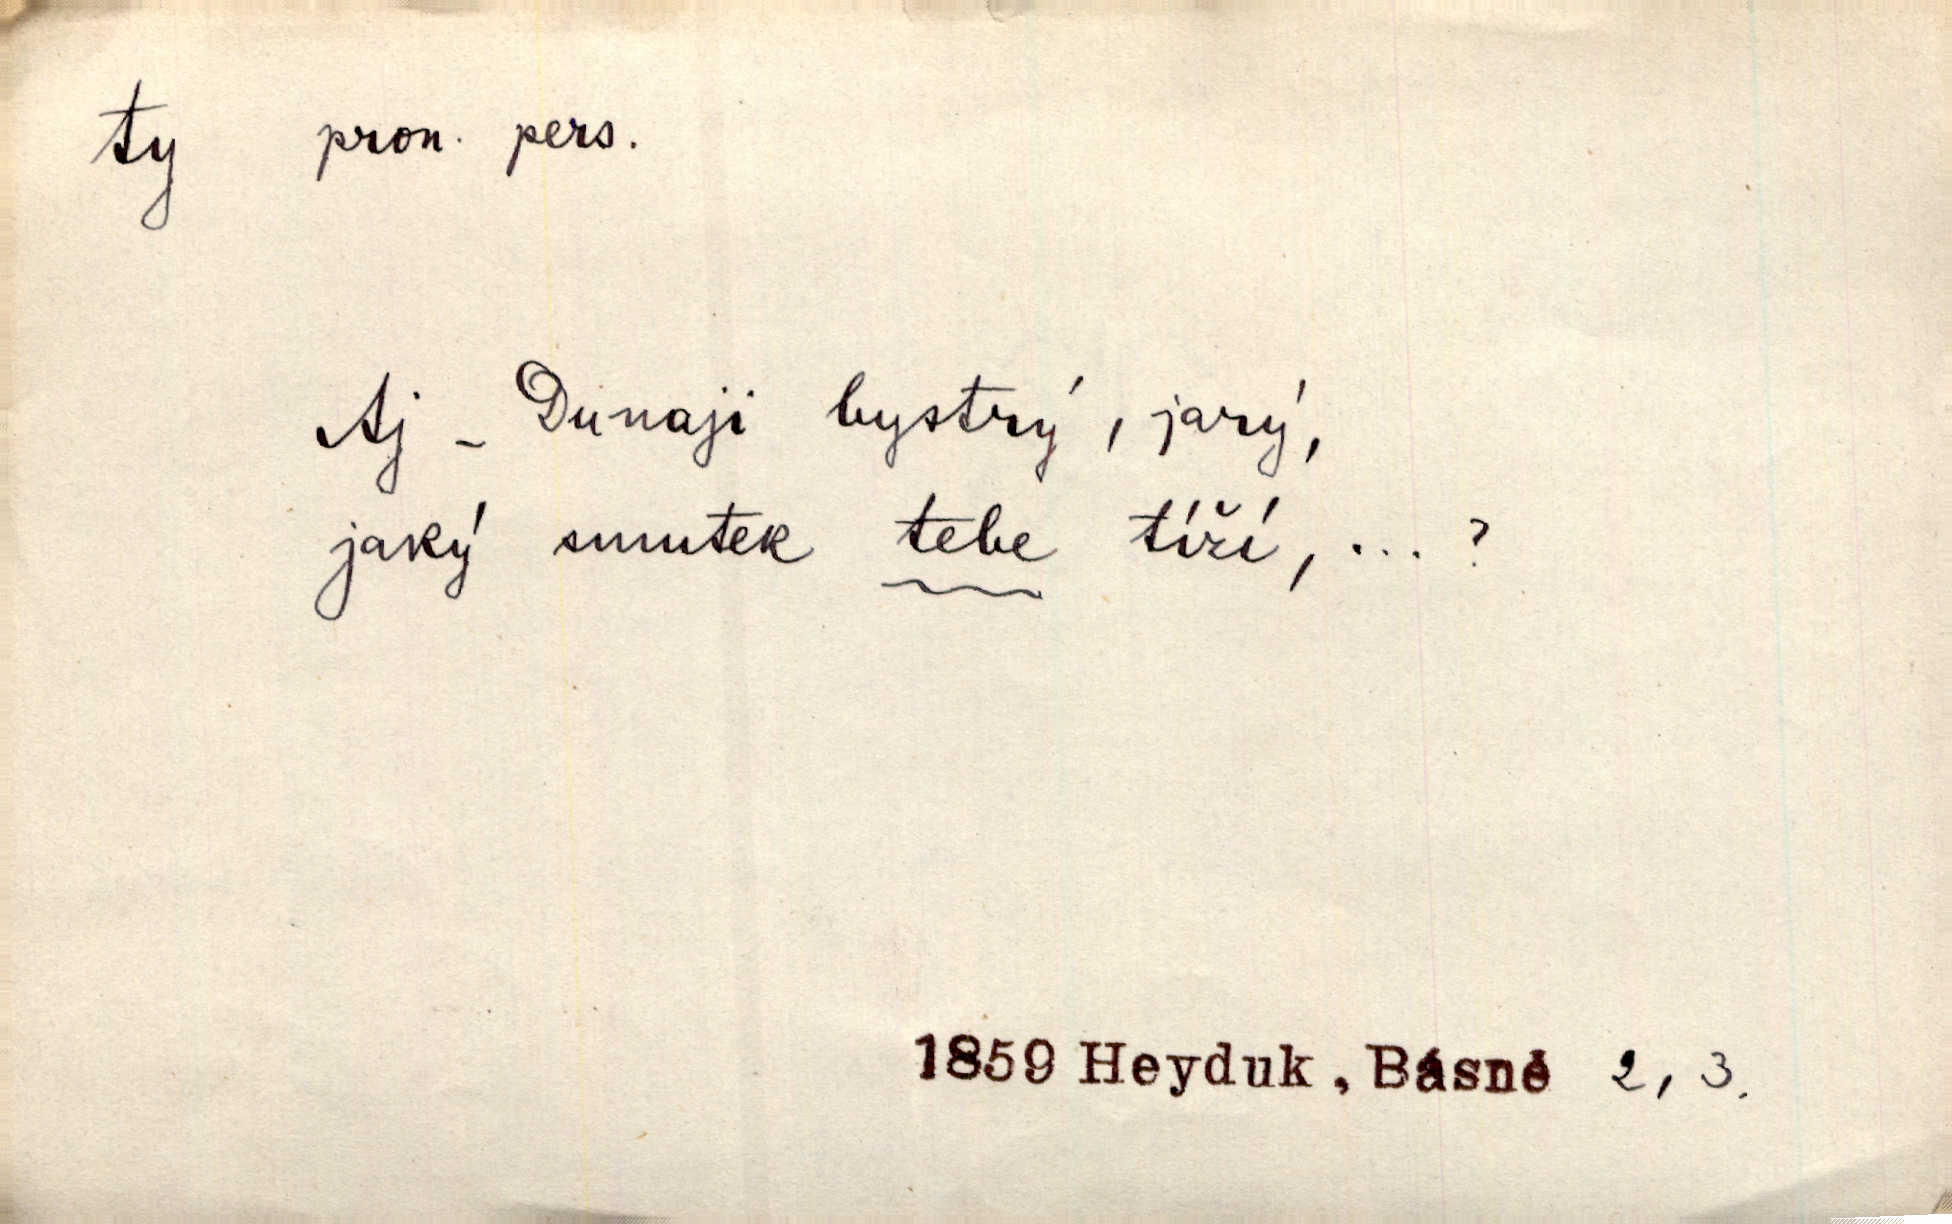 ty pron. pers.
Aj – Dunaji bystrý, jarý,
jaký smutek tebe tíží, ... ?
1859 Heyduk, Básně 2, 3.